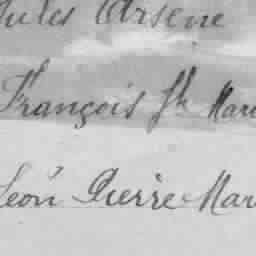 Jules Arsène
François Jh Mari
Léon Pierre Mar